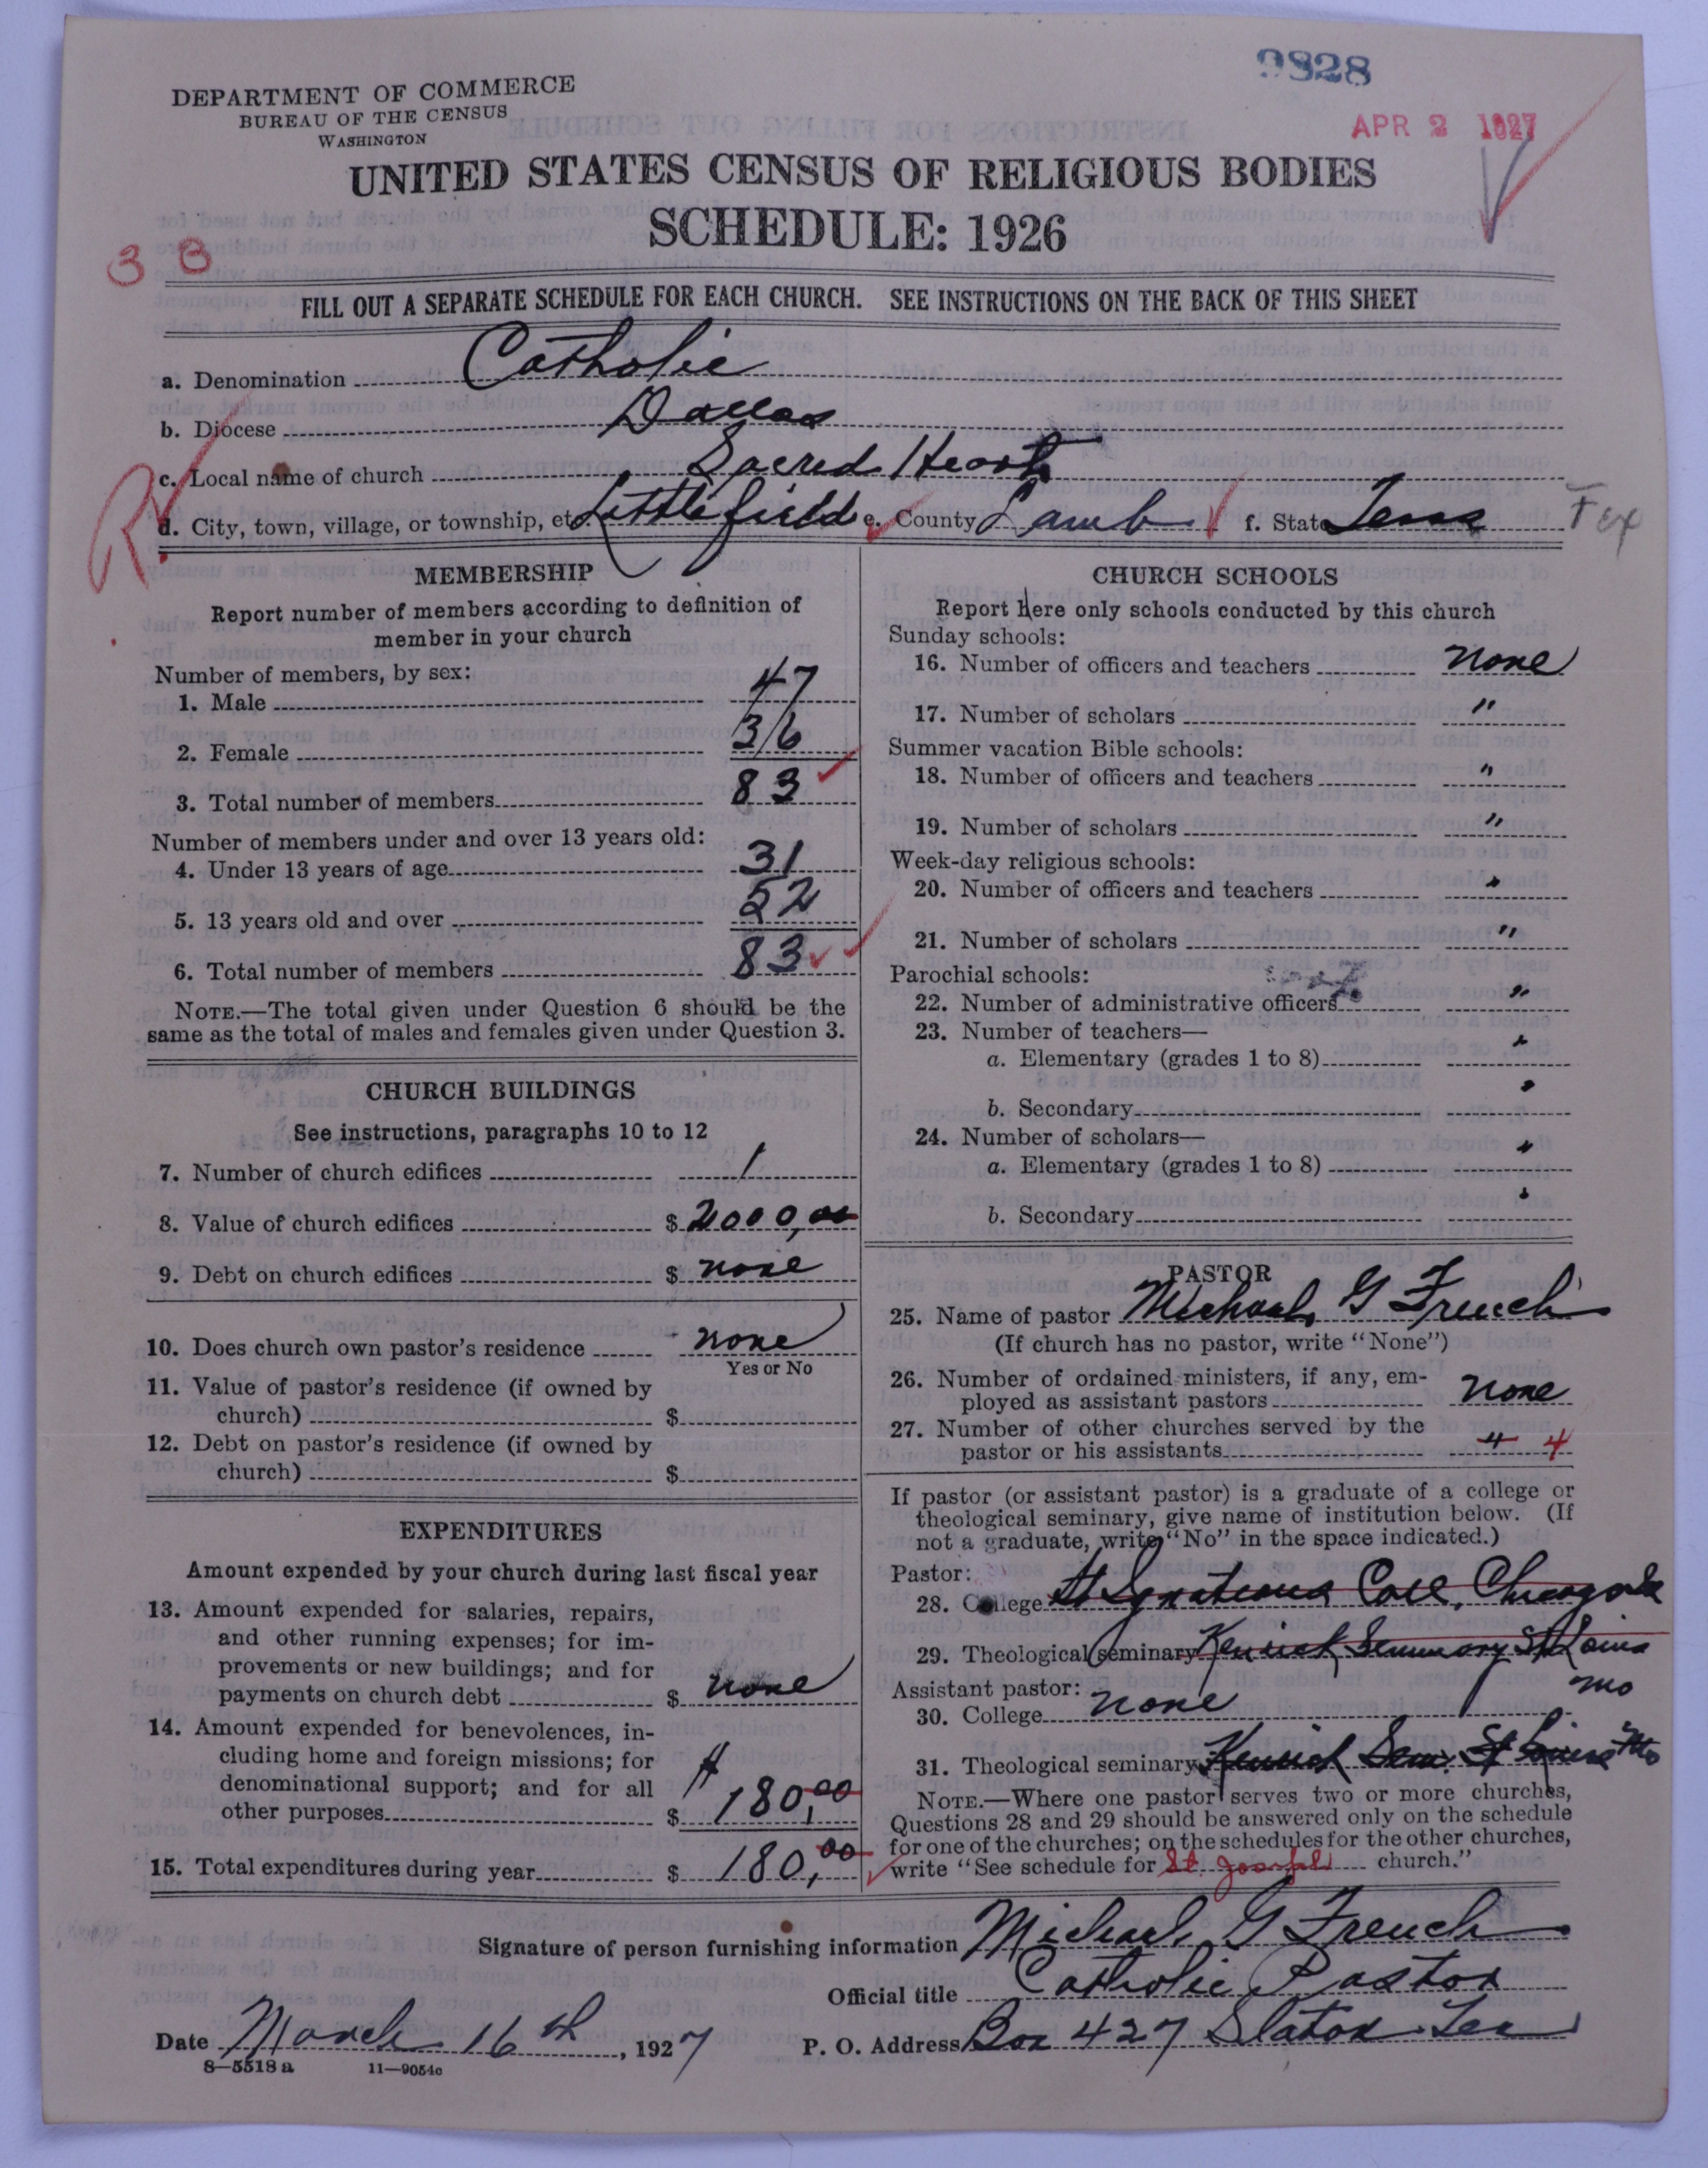 9828
DEPARTMENT OF COMMERCE
BUREAU OF THE CENSUS
WASHINGTON
APR 2 1927
UNITED STATES CENSUS OF RELIGIOUS BODIES
SCHEDULE: 1926
3 3
FILL OUT A SEPARATE SCHEDULE FOR EACH CHURCH. SEE INSTRUCTIONS ON THE BACK OF THIS SHEET
a. Denomination Catholic
b. Diocese Dallas
c. Local name of church Sacred Heart
d. City, town, village, or township, etc Littlefield e. County Lamb f. State Texas Tex
MEMBERSHIP
Report number of members according to definition of
member in your church
Number of members, by sex:
1. Male 47
2. Female 36
3. Total number of members 83
Number of members under and over 13 years old:
4. Under 13 years of age 31
5. 13 years old and over 52
6. Total number of members 83
NOTE.—The total given under Question 6 should be the
same as the total of males and females given under Question 3.
CHURCH BUILDINGS
See instructions, paragraphs 10 to 12
7. Number of church edifices 1
8. Value of church edifices $ 2000,00
9. Debt on church edifices $ none
10. Does church own pastor's residence none
Yes or No
11. Value of pastor's residence (if owned by
church) $
12. Debt on pastor's residence (if owned by
church) $
EXPENDITURES
Amount expended by your church during last fiscal year
13. Amount expended for salaries, repairs,
and other running expenses; for im-
provements or new buildings; and for
payments on church debt $ none
14. Amount expended for benevolences, in-
cluding home and foreign missions; for
denominational support; and for all
other purposes $ 180,00
15. Total expenditures during year $ 180,00
CHURCH SCHOOLS
Report here only schools conducted by this church
Sunday schools:
16. Number of officers and teachers none
17. Number of scholars "
Summer vacation Bible schools:
18. Number of officers and teachers "
19. Number of scholars "
Week-day religious schools:
20. Number of officers and teachers "
21. Number of scholars "
Parochial schools:
22. Number of administrative officers "
23. Number of teachers—
a. Elementary (grades 1 to 8) "
b. Secondary "
24. Number of scholars—
a. Elementary (grades 1 to 8) "
b. Secondary "
PASTOR
25. Name of pastor Michael G French
(If church has no pastor, write "None")
26. Number of ordained ministers, if any, em-
ployed as assistant pastors none
27. Number of other churches served by the
pastor or his assistants 4 4
If pastor (or assistant pastor) is a graduate of a college or
theological seminary, give name of institution below. (If
not a graduate, write "No" in the space indicated.)
Pastor:
28. College St Ignatious Coll, Chicago
29. Theological seminary Kenrick Seminary St Louis
Mo
Assistant pastor:
30. College none
31. Theological seminary Kenrick Sem. St Louis Mo
NOTE.—Where one pastor serves two or more churches,
Questions 28 and 29 should be answered only on the schedule
for one of the churches; on the schedules for the other churches,
write "See schedule for St. Joseph church."
Signature of person furnishing information Michael G French
Official title Catholic Pastor
Date March 16th, 1927 P. O. Address Box 427 Slaton Tex
8—5518 a 11—9054c